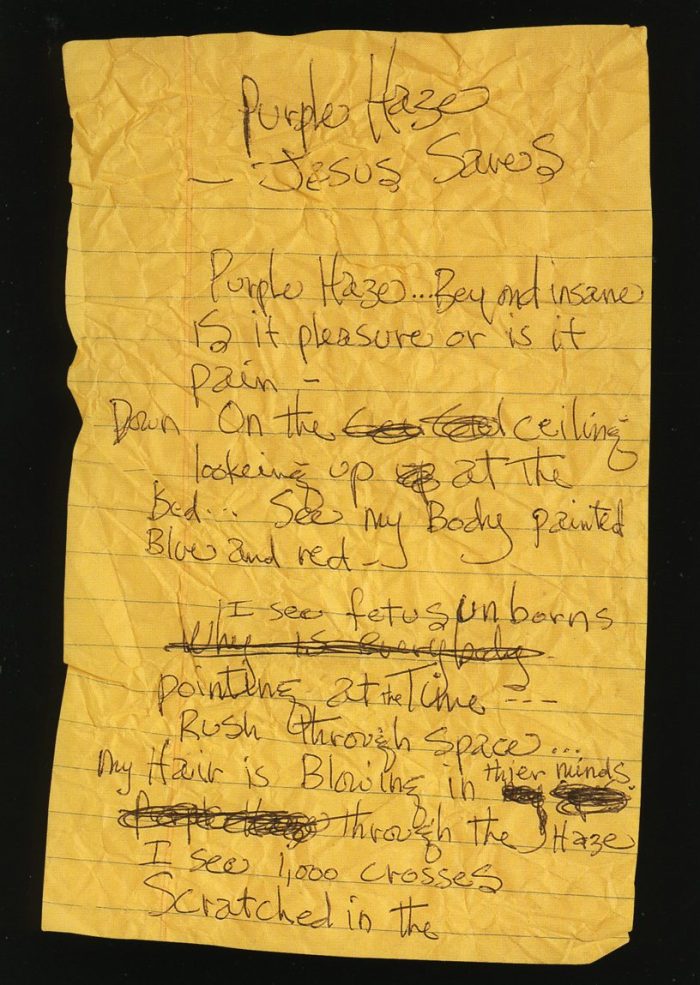 Purple Haze
— Jesus Saves
Purple Haze...Beyond insane
Is it pleasure or is it
pain –
Down On the ceiling
lookeing up at the
Bed... See my Body painted
Blue and red –
I see fetus unborns
Why is everybody
pointing at the Time ---
Rush through space...
my Hair is Blowing in thier minds
through the Haze
I see 1,000 crosses
Scratched in the